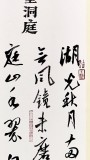 湖光秋月
无风镜未磨
洞庭
庭山水翠